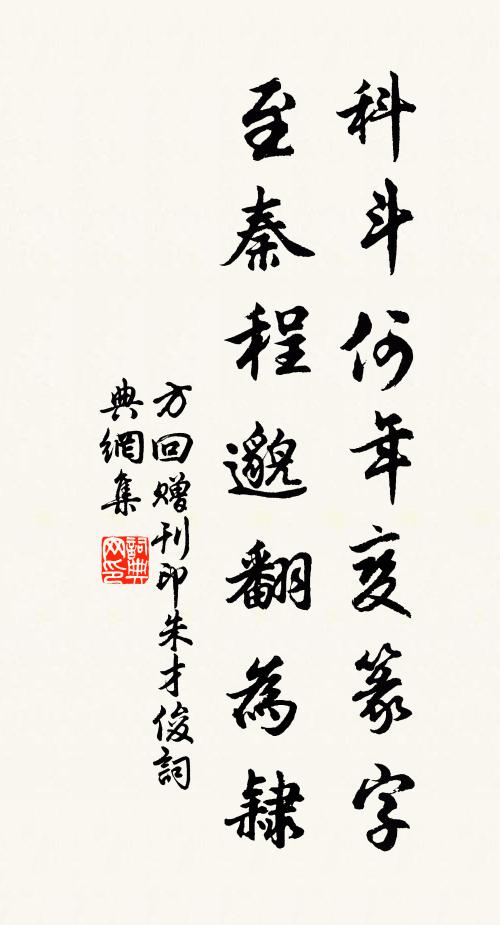 科斗何年变篆字
至秦程邈翻為隸
方回赠刊印朱才俊詞
典網集
詞典网印